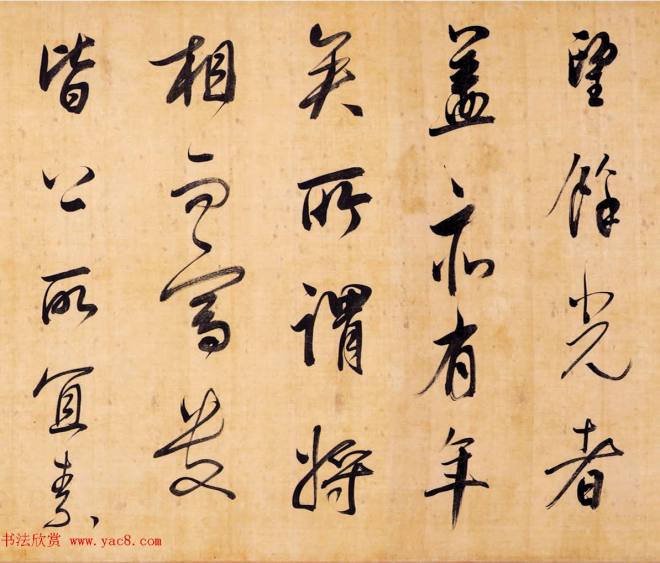 望餘光者
蓋亦有年
矣所謂將
相而富貴
皆公所宜素
书法欣赏 www.yac8.com